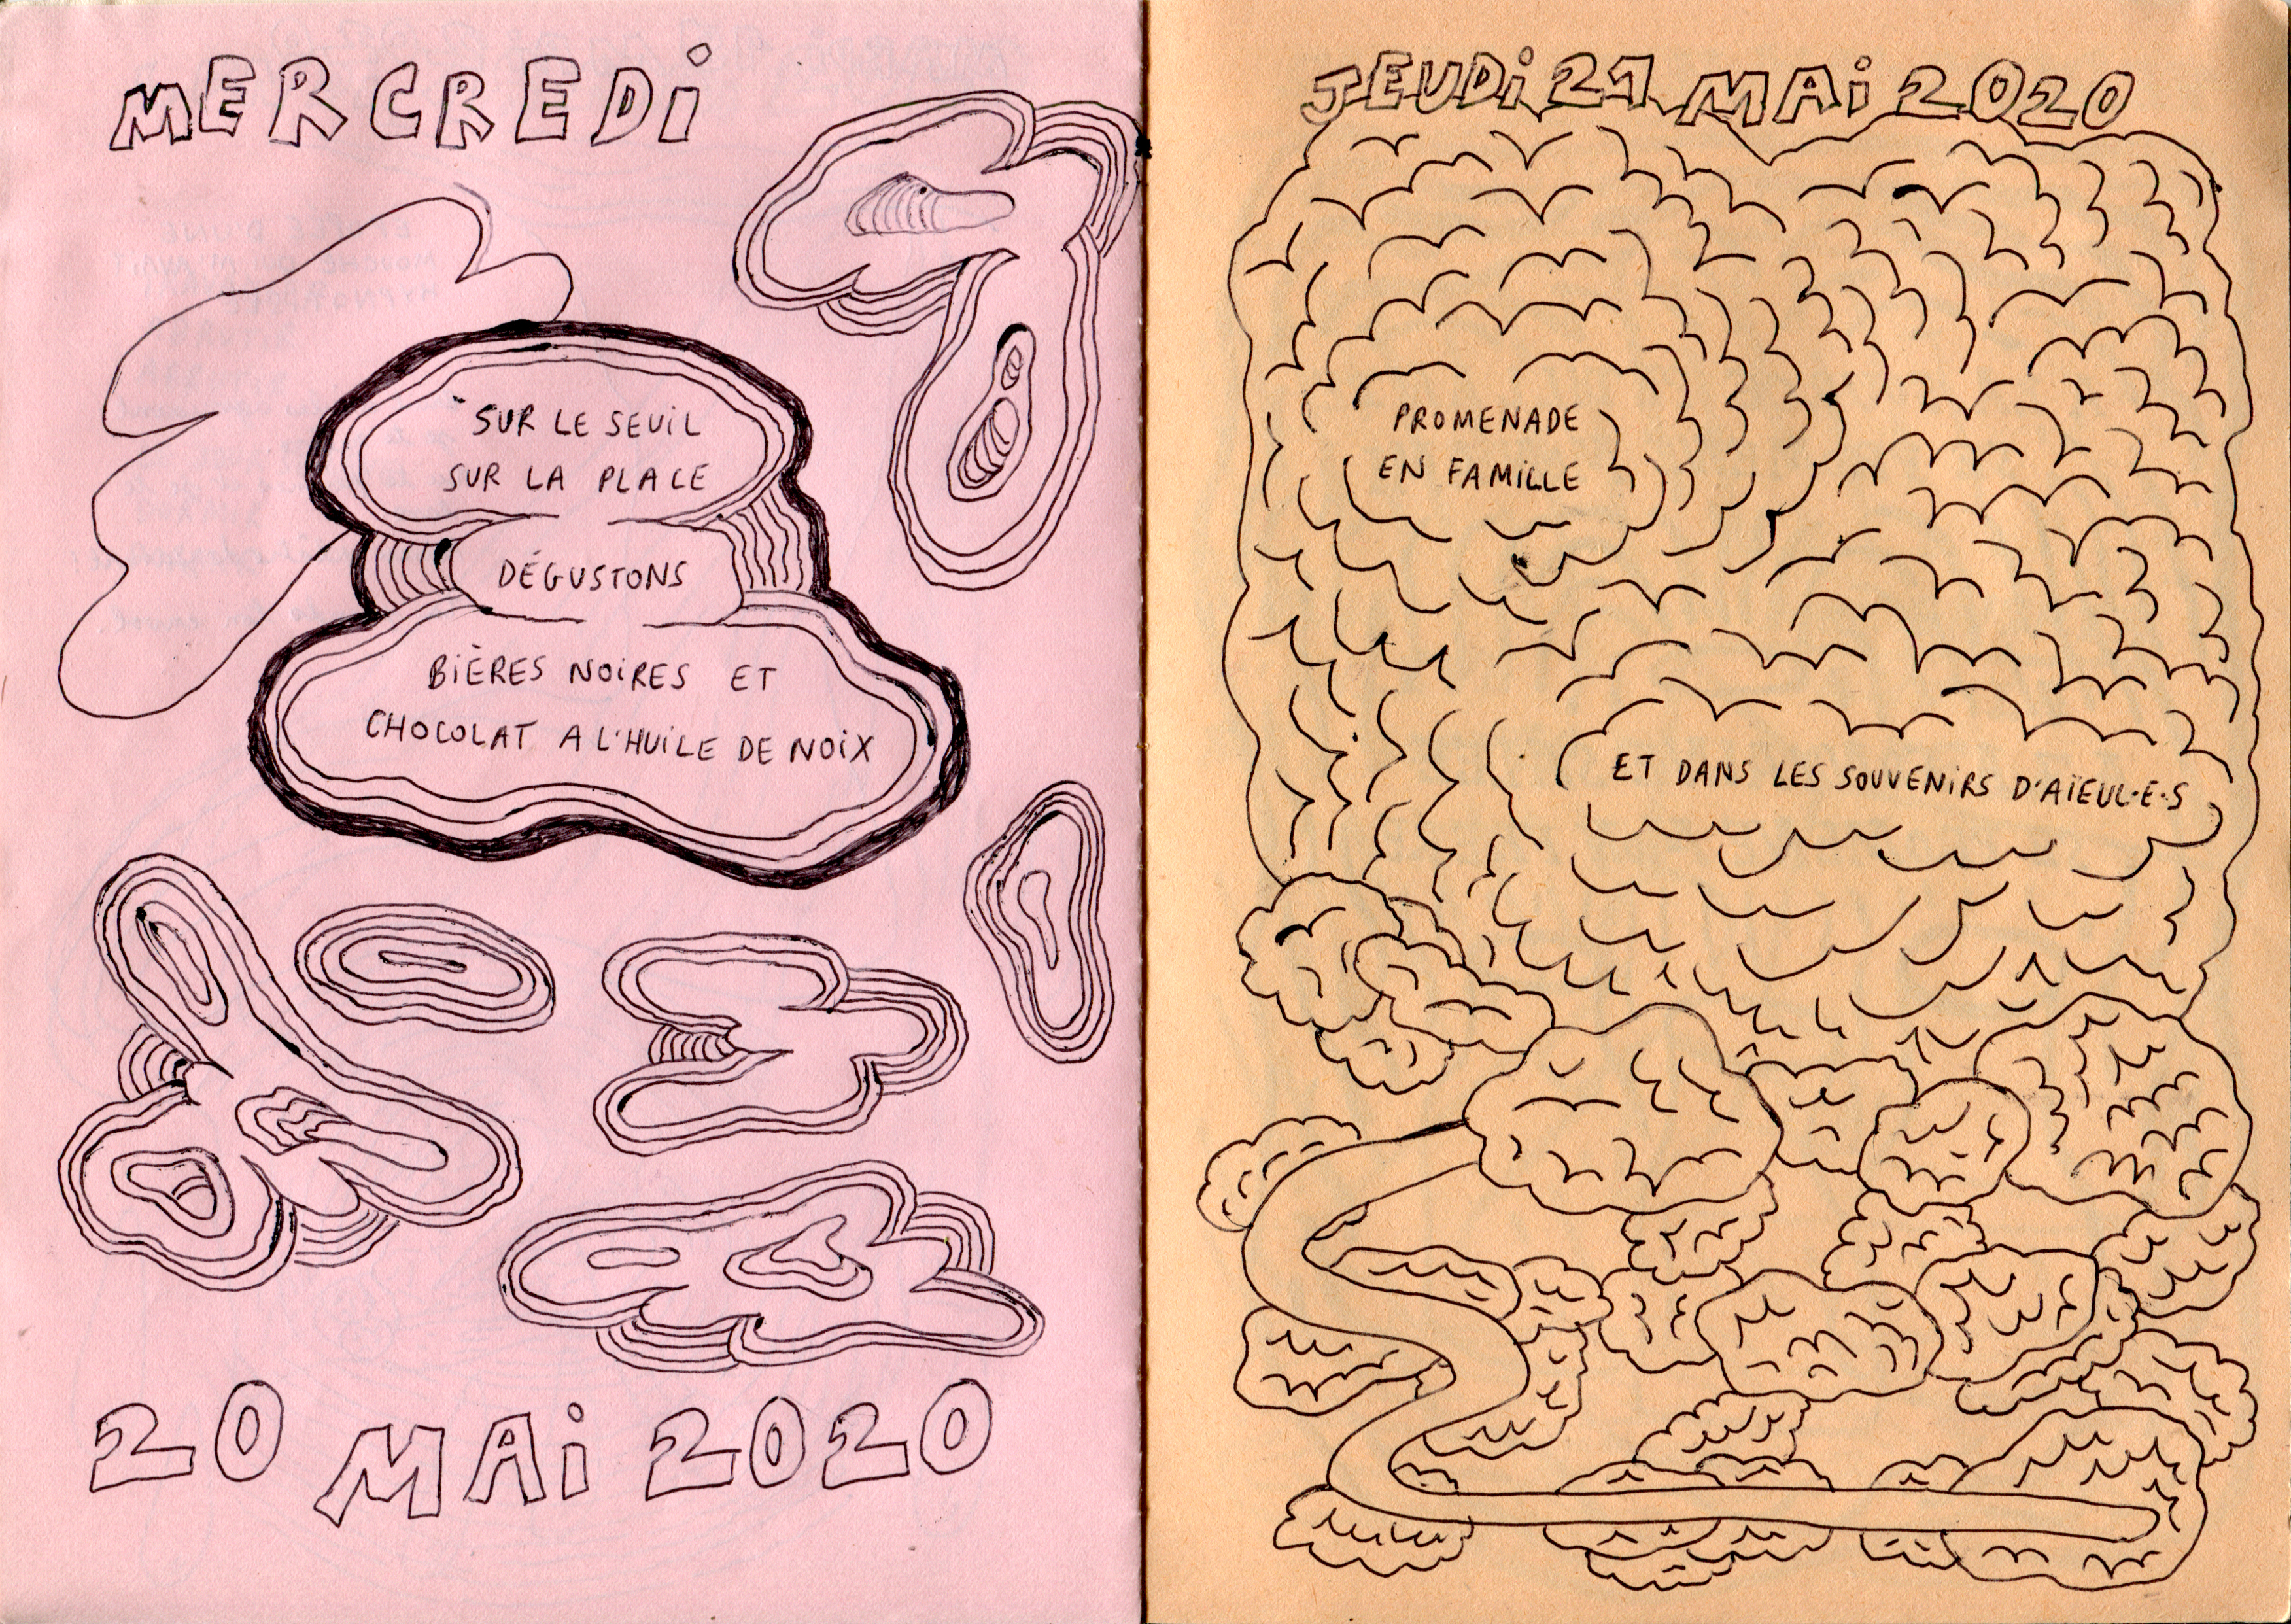 MERCREDi
SUR LE SEUiL
SUR LA PLACE
DÉGUSTONS
BiÈRES NOiRES ET
CHOCOLAT A L'HUiLE DE NOiX
20 MAi 2020
JEUDi 21 MAi 2020
PROMENADE
EN FAMiLLE
ET DANS LES SOUVENiRS D'AÏEUL·E·S